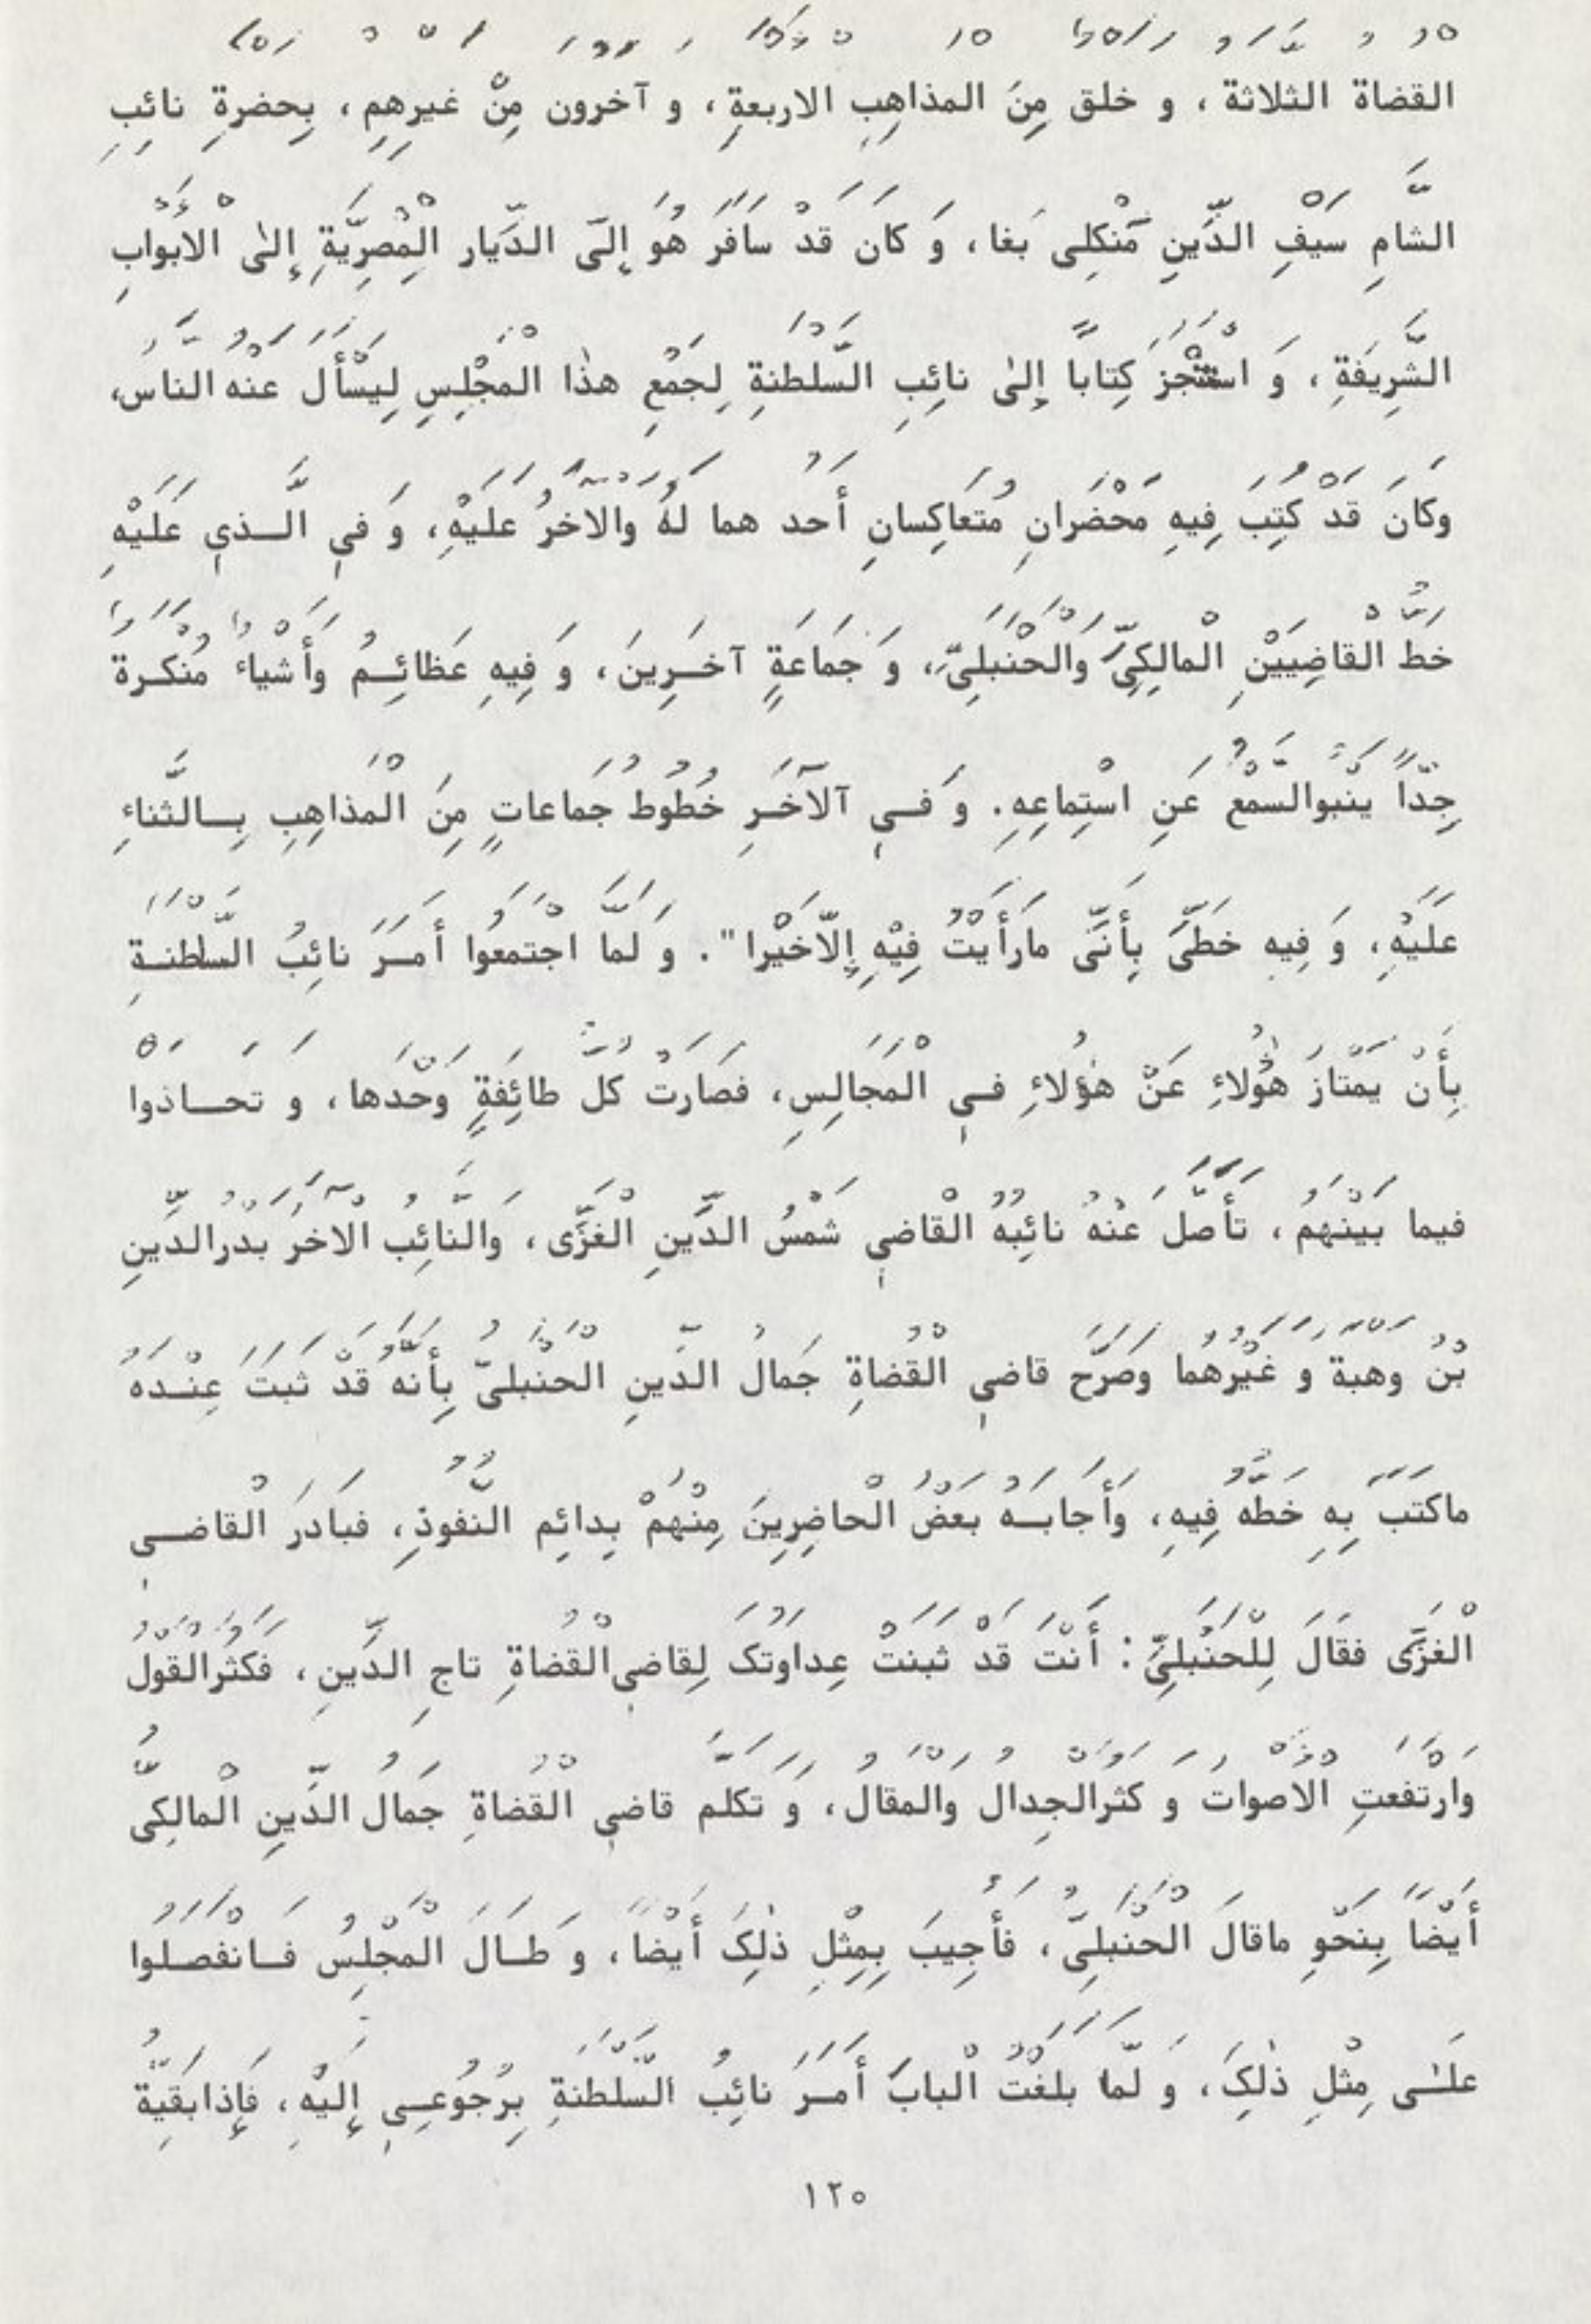 القضاة الثلاثة ، و خلق مِنَ المذاهِبِ الاربعةِ، و آخرون مِنْ غيرِهِمِ ، بِحضرةِ نائِبِ
الشّامِ سَيْفِ الدّينِ مَنْكِلى بَغا ، وَ كان قدْ سافَرَ هُوَ إِلَى الدّيار الْمِصْرِيَّةِ إِلىٰ الابوابِ
الشَّرِيفَةِ ، وَ اسْتَنْجَزَ كِتابًا إِلىٰ نائِبِ السَّلطنةِ لِجَمْعِ هذٰا الْمَجْلِسِ لِيَسْأَل عَنْه الناس،
وَكَانَ قَدْ كُتِبَ فِيهِ مَحْضَرانِ مُتَعَاكِسانِ أَحَد هما لَهُ والآخَرُ عليْهِ، وَ في الَّـذي عَلَيْهِ
خَطُّ الْقاضِيَيْنِ الْمالِكِيِّ وَالْحَنْبلِيِّ، وَ جَمَاعَةٍ آخَـرِينَ ، وَ فِيهِ عَظائِـمُ وَأَشْياء مُنْكَـرة
جِدّاً يَنْبوالسَّمْعُ عَنِ اسْتِماعِهِ. وَ فــي آلآخَـرِ خُطُوط جَماعاتٍ مِنَ الْمذاهِبِ بِــالثَّناءِ
عَلَيْهِ، وَ فِيه خَطّى بِأَنّى مارَأَيْتُ فِيْهِ إِلّاخَيْرا" . وَ لَمّا اجْتَمَعُوا أَمـَـرَ نائِبُ السَّلْطَنـةِ
بِأَنْ يَمْتازَ هٰؤُلاءِ عَنْ هٰؤُلاءِ فـي الْمَجالِسِ، فَصَارَتْ كلّ طائِفَةٍ وَحْدَها ، و تحـــاذوا
فيما بَيْنَهُمْ ، تَأَصَّل عَنْهُ نائِبُهُ الْقاضي شَمْسُ الدّينِ الْغَزّى ، وَالنّائِبُ الآخَرُ بَدْرالدّينِ
بْنُ وهبة و غَيْرهُما وَصَرَّحَ قاضي الْقُضاةِ جَمالُ الدّينِ الْحَنْبَلىّ بِأَنَّهُ قَدْ ثَبَتَ عِنْـدَهُ
ماكَتَبَ بِهِ خَطُّه فِيهِ، وَأَجابَــهُ بَعْضُ الْحاضِرِينَ مِنْهُمْ بِدائِم النُّفوذِ ، فَبادَرَ الْقاضـــى
الْغَزّى فَقالَ لِلْحَنْبَلِيّ : أَنْتَ قَدْ ثبنتْ عِداوَتُک لِقاضي‌الْقُضاةِ تاجِ الدّينِ ، فَكَثُرَالْقوْلُ
وَارْتَفَعتِ الاصواتُ و كثرالْجِدال وَالْمقالُ، وَ تَكَلَّم قاضي الْقُضاةِ جَمالُ الدّينِ الْمالِكىُّ
أَيْضاً بِنَحْوِ ماقالَ الْحَنْبلِيّ ، فَأُجِيبَ بِمِثْلِ ذٰلِکَ أَيْضاً ، وَ طــالَ الْمَجْلِسُ فَــانْفَصَـلُوا
علـٰـى مِثْلِ ذٰلِکَ، وَ لَمّا بَلَغْتُ الْبابَ أَمَـرَ نائِبُ السَّلْطَنَةِ بِرُجُوعـي إِلَيْهِ ، فَإِذابَقِيَّةُ
١٢٥